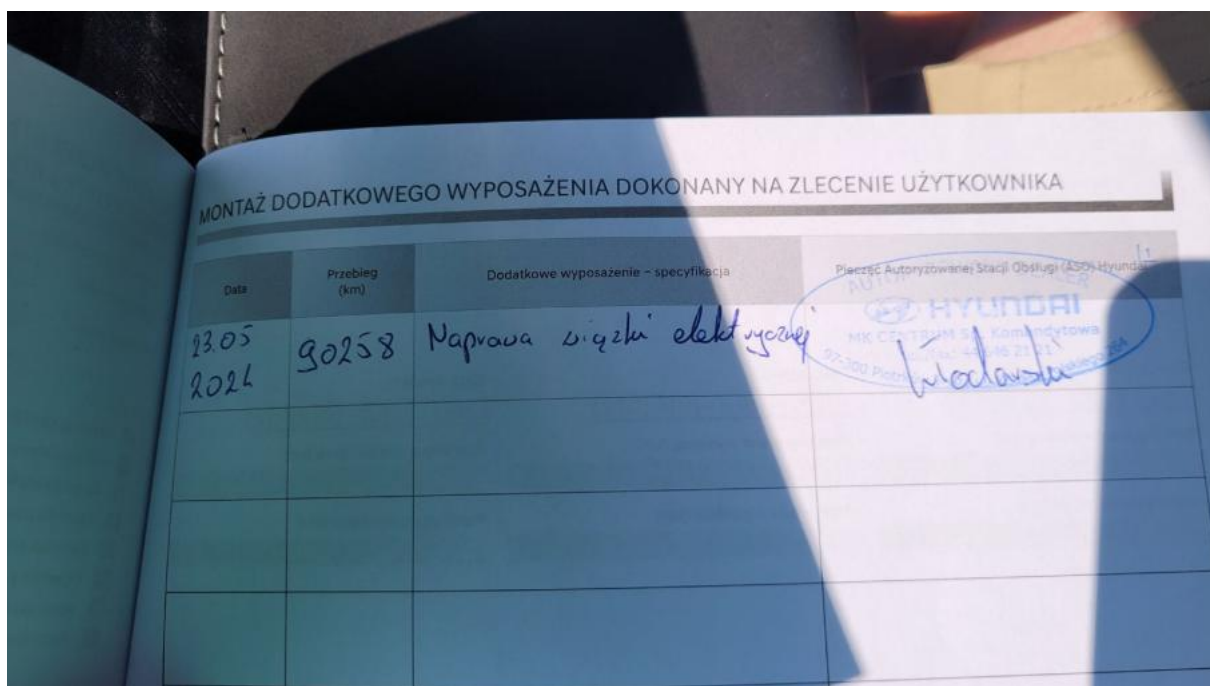 MONTAŻ DODATKOWEGO WYPOSAŻENIA DOKONANY NA ZLECENIE UŻYTKOWNIKA
Data
Przebieg
(km)
Dodatkowe wyposażenie – specyfikacja
Pieczęć Autoryzowanej Stacji Obsługi (ASO) Hyundai
23.05
2024
90258
Naprawa wiązki elektrycznej
HYUNDAI
MK CENTRUM Sp. Komandytowa
97-300